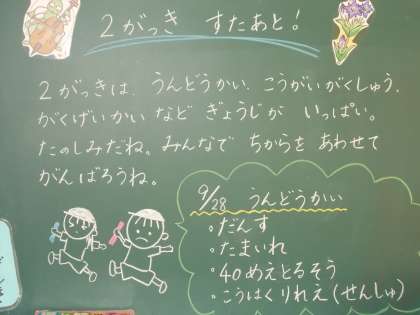 2がっき すたあと!
2がっきは、うんどうかい、こうがいがくしゅう、
がくげいかい など ぎょうじが いっぱい。
たのしみだね。みんなで ちからを あわせて
がんばろうね。
9/28 うんどうかい
。だんす
。たまいれ
。40めえとるそう
。こうはくりれえ(せんしゅ)